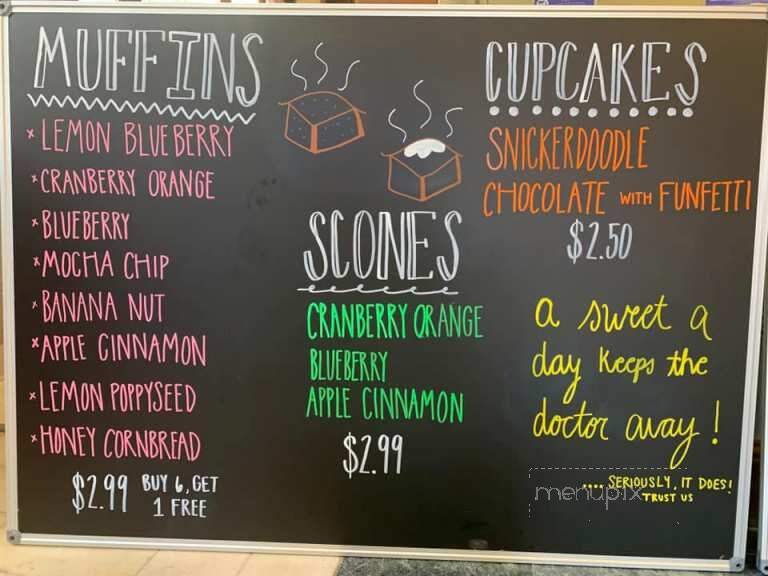 MUFFINS
* LEMON BLUEBERRY
* CRANBERRY ORANGE
* BLUEBERRY
* MOCHA CHIP
* BANANA NUT
* APPLE CINNAMON
* LEMON POPPYSEED
* HONEY CORNBREAD
$2.99 BUY 6, GET
1 FREE
SCONES
CRANBERRY ORANGE
BLUEBERRY
APPLE CINNAMON
$2.99
CUPCAKES
SNICKERDOODLE
CHOCOLATE WITH FUNFETTI
$2.50
a sweet a
day keeps the
doctor away!
.... SERIOUSLY, IT DOES!
TRUST US
menupix